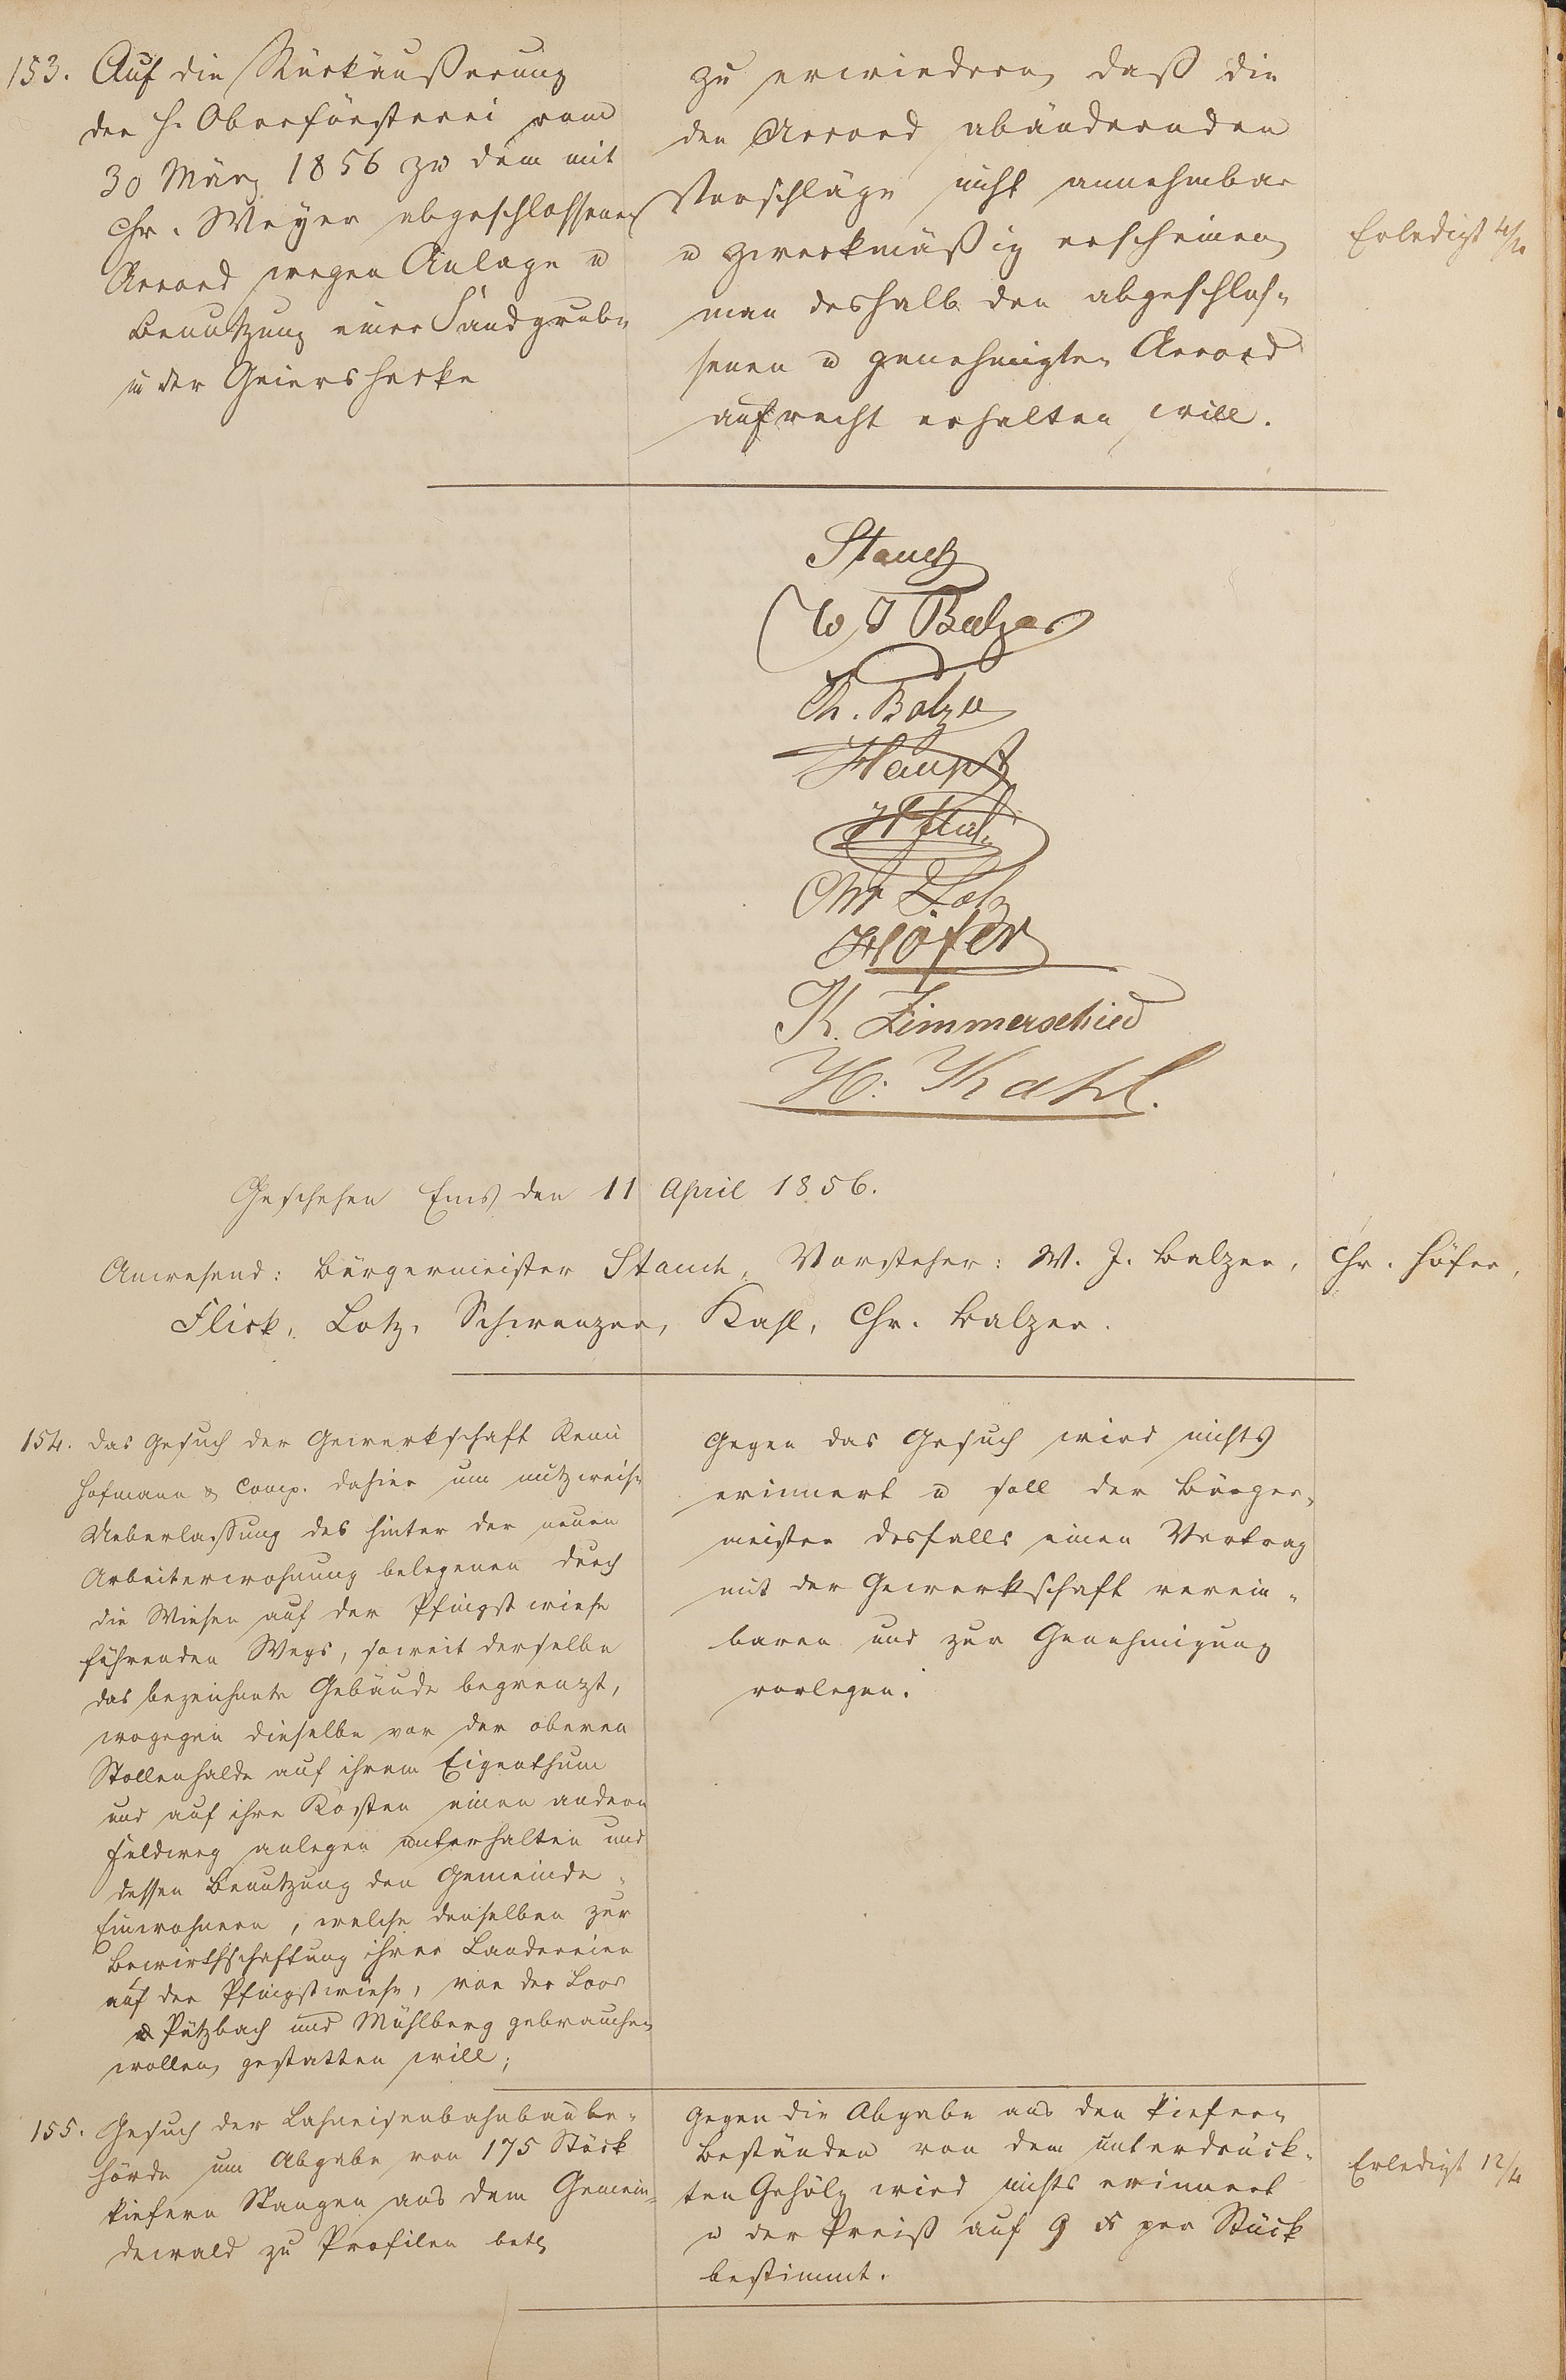 153. Auf die Rückäußerung
der H. Oberförsterei vom
30 März 1856 zu dem mit
Chr. Meyer abgeschlossenen
Accord wegen Anlage u
Benutzung einer Sandgrube
in der Geiershecke
zu erwiedern, daß die
den Accord abändernden
Vorschläge nicht annehmbar
u zweckmäßig erscheinen,
man deshalb den abgeschlos-
senen u genehmigten Accord
aufrecht erhalten will.
Erledigt
Stauch
W J Balzer
Ch. Balzer
Haupt
Chr Lotz
Höfer
K. Zimmerschied
H: Kahl.
Geschehen Ems den 11 April 1856.
Anwesend: Bürgermeister Stauch, Vorsteher: W. J. Balzer, Chr. Höfer,
Flick, Lotz, Schwenzer, Kahl, Chr. Balzer.
154. Das Gesuch der Gewerkschaft Remi
Hofmann & Comp. dahier um nutzweise
Ueberlassung des hinter der neuen
Arbeiterwohnung belegenen durch
die Wiesen auf der Pfingstwiese
führenden Wegs, soweit derselbe
das bezeichnete Gebäude begrenzt,
wogegen dieselbe vor der oberen
Stollenhalde auf ihrem Eigenthum
und auf ihre Kosten einen andern
Feldweg anlegen unterhalten und
dessen Benutzung den Gemeinde-
Einwohnern, welche denselben zur
Bewirthschaftung ihrer Ländereien
auf der Pfingstwiese, von der Loos
Pützbach und Mühlberg gebrauchen
wollen, gestatten will;
Gegen das Gesuch wird nichts
erinnert u soll der Bürger-
meister desfalls einen Vertrag
mit der Gewerkschaft verein-
baren und zur Genehmigung
vorlegen.
155. Gesuch der Lahneisenbahnbaube-
hörde um Abgabe von 175 Stück
kiefern Stangen aus dem Gemein-
dewald zu Profilen betr
Gegen die Abgabe aus den kiefern
Beständen von dem unterdrück-
ten Gehölz wird nichts erinnert
u der Preiß auf 9 xr per Stück
bestimmt.
Erledigt 12/4